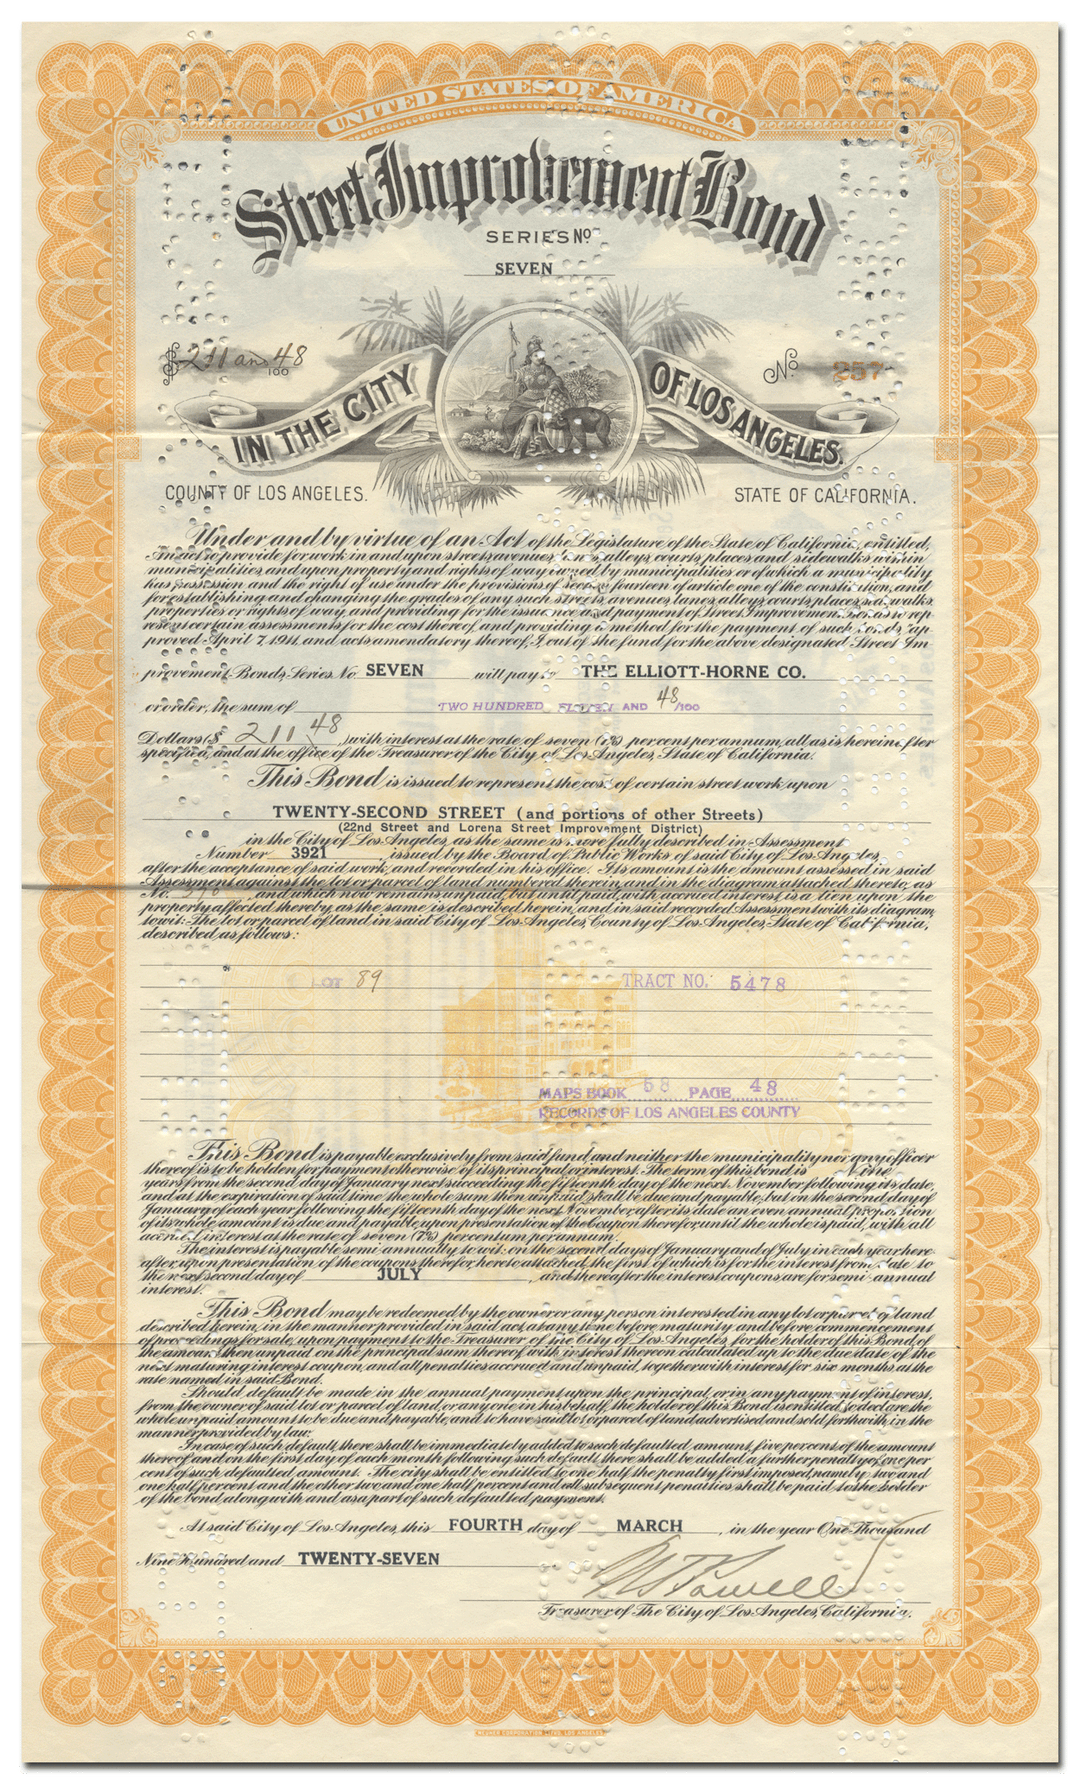 UNITED STATES OF AMERICA
Street Improvement Bond
SERIES No
SEVEN
$ 211 and 48/100
No. 257
IN THE CITY OF LOS ANGELES.
COUNTY OF LOS ANGELES.
STATE OF CALIFORNIA.
Under and by virtue of an Act of the Legislature of the State of California, entitled,
An act to provide for work in and upon streets, avenues, lanes, alleys, courts, places and sidewalks within
municipalities, and upon property and rights of way owned by municipalities or of which a municipality
has possession and the right of use under the provisions of section fourteen of article one of the constitution, and
for establishing and changing the grades of any such streets, avenues, lanes, alleys, courts, places, sidewalks,
properties or rights of way and providing for the issuance and payment of Street Improvement Bonds to rep-
resent certain assessments for the cost thereof and providing a method for the payment of such bonds, ap-
proved April 7, 1911, and acts amendatory thereof, I, out of the fund for the above designated Street Im-
provement Bonds, Series No SEVEN will pay to THE ELLIOTT-HORNE CO.
or order, the sum of TWO HUNDRED ELEVEN AND 48/100
Dollars ($ 211 48 ) with interest at the rate of seven (7%) per cent per annum, all as is hereinafter
specified, and at the office of the Treasurer of the City of Los Angeles, State of California.
This Bond is issued to represent the cost of certain street work upon
TWENTY-SECOND STREET (and portions of other Streets)
(22nd Street and Lorena Street Improvement District)
in the City of Los Angeles, as the same is more fully described in Assessment
Number 3921 issued by the Board of Public Works of said City of Los Angeles,
after the acceptance of said work, and recorded in his office. Its amount is the amount assessed in said
Assessment against the lot or parcel of land numbered therein, and in the diagram attached thereto, as
No. , and which now remains unpaid, but until paid, with accrued interest is a lien upon the
property affected thereby, as the same is described herein, and in said recorded Assessment with its diagram,
to wit: The lot or parcel of land in said City of Los Angeles, County of Los Angeles, State of California,
described as follows:
LOT 89 TRACT NO. 5478
MAPS BOOK 58 PAGE 48
RECORDS OF LOS ANGELES COUNTY
This Bond is payable exclusively from said fund, and neither the municipality nor any officer
thereof is to be holden for payment otherwise of its principal or interest. The term of this bond is Nine
years from the second day of January next succeeding the fifteenth day of the next November following its date,
and at the expiration of said time the whole sum then unpaid shall be due and payable, but on the second day of
January of each year following the fifteenth day of the next November, after its date an even annual proportion
of its whole amount is due and payable, upon presentation of the coupon therefor, until the whole is paid, with all
accrued interest at the rate of seven (7%) per centum per annum.
The interest is payable semi-annually to wit: on the second days of January and of July in each year here-
after, upon presentation of the coupons therefor, hereto attached, the first of which is for the interest from date to
the next second day of JULY , and thereafter the interest coupons are for semi-annual
interest.
This Bond may be redeemed by the owner or any person interested in any lot or parcel of land
described herein, in the manner provided in said act, at any time before maturity and before commencement
of proceedings for sale, upon payment to the Treasurer of the City of Los Angeles, for the holder of this Bond of
the amount then unpaid on the principal sum thereof with interest thereon calculated up to the due date of the
next maturing interest coupon, and all penalties accrued and unpaid, together with interest for six months at the
rate named in said Bond.
Should default be made in the annual payment upon the principal, or in any payment of interest,
from the owner of said lot or parcel of land, or any one in his behalf, the holder of this Bond is entitled to declare the
whole unpaid amount to be due and payable, and to have said lot or parcel of land advertised and sold forthwith, in the
manner provided by law.
In case of such default, there shall be immediately added to such defaulted amount, five per cent, of the amount
thereof and on the first day of each month following such default there shall be added a further penalty of one per
cent of such defaulted amount. The city shall be entitled to one half the penalty first imposed, namely two and
one half per cent and the other two and one half per cent and all subsequent penalties shall be paid to the holder
of the bond along with and as a part of such defaulted payment.
At said City of Los Angeles, this FOURTH day of MARCH , in the year One Thousand
Nine Hundred and TWENTY-SEVEN
Powell
Treasurer of The City of Los Angeles, California.